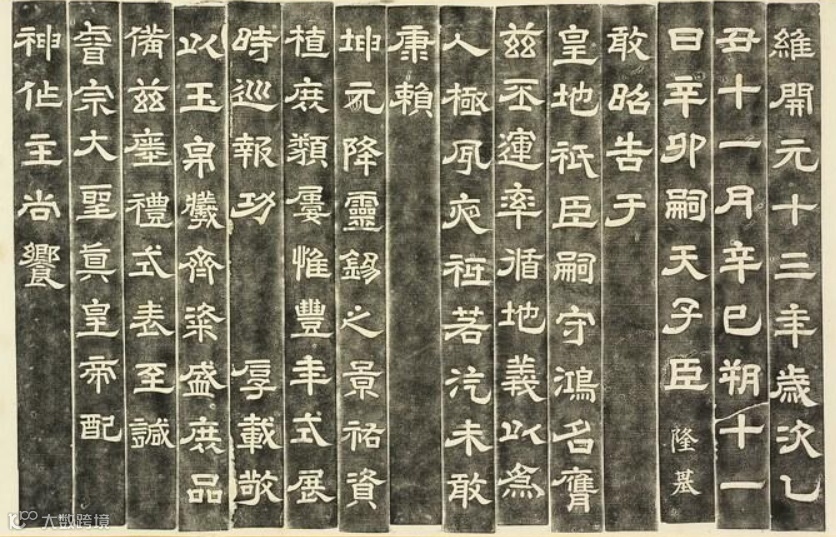 維開元十三年歲次乙
丑十一月辛巳朔十一
日辛卯嗣天子臣隆基
敢昭告于
皇地祇臣嗣守鴻名膺
茲丕運率循地義以爲
人極夙夜祗若汔未敢
康賴
坤元降靈錫之景祐資
植庶類屢惟豐年式展
時巡報功 厚載敬
以玉帛犧齊粢盛庶品
備茲瘞禮式表至誠
睿宗大聖眞皇帝配
神作主尚饗
大数跨境